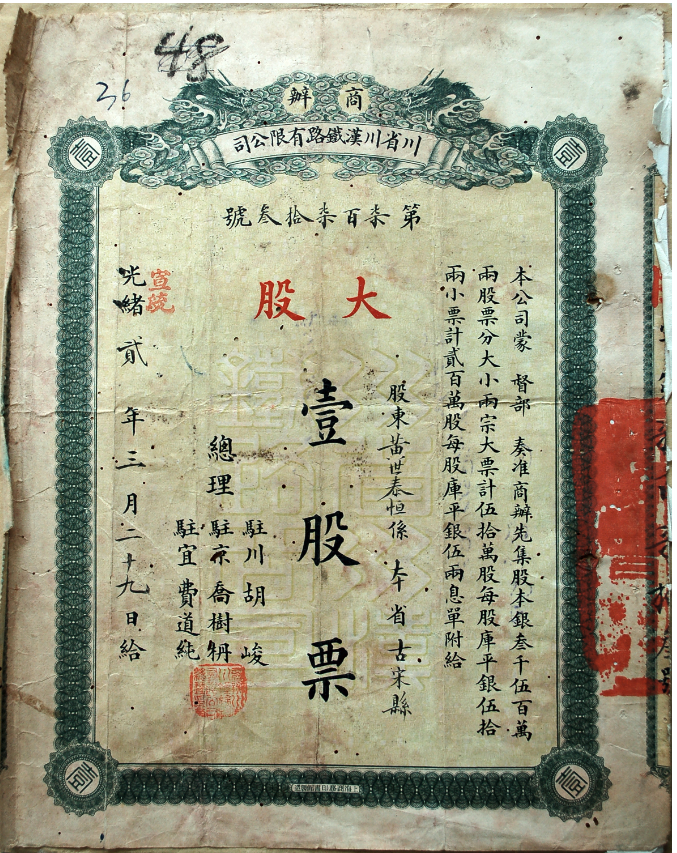 48
36
商辦
川省川漢鐵路有限公司
第柒百柒拾叁號
大股
本公司蒙 督部 奏准商辦先集股本銀叁千伍百萬
兩股票分大小兩宗大票計伍拾萬股每股庫平銀伍拾
兩小票計貳百萬股每股庫平銀伍兩息單附給
股東黃世泰恒係 本省古宋縣
壹股票
總理
駐川胡峻
駐京喬樹枬
駐宜費道純
宣統
光緒貳年三月二十九日給
壹
壹
壹
壹